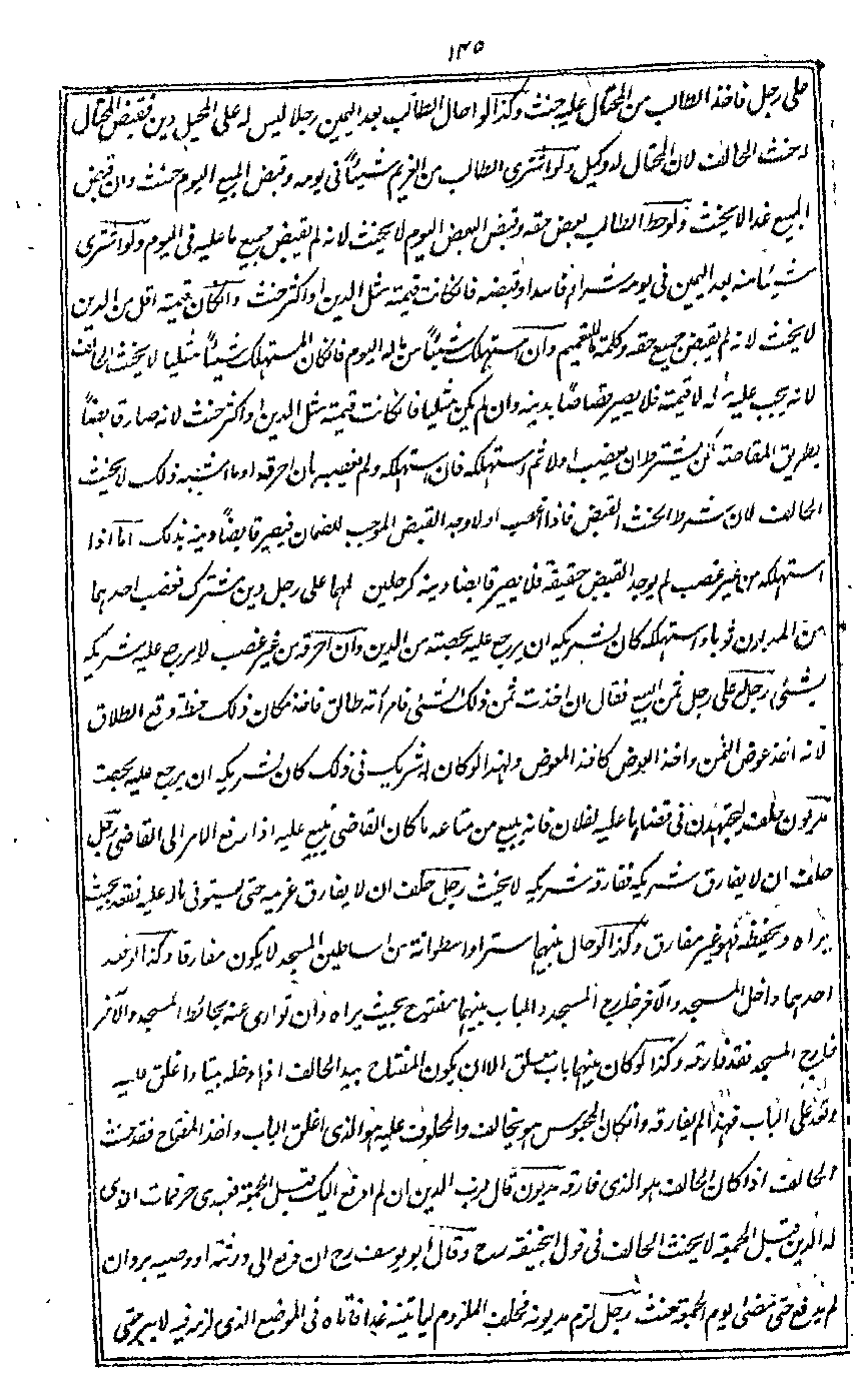 ١٣٥
على رجل فاخذ الطالب من المحتال عليه حنث وكذا لو احال الطالب بعد اليمين رجلا ليس له على المحيل دين فقبض المحتال
له حنث الحالف لان المحتال له وكيل ولو اشترى الطالب من الغريم شيئاً فى يومه وقبض المبيع اليوم حنث وان قبض
المبيع غدا لا يحنث ولو حط الطالب بعض حقه وقبض البعض اليوم لا يحنث لانه لم يقبض جميع ما عليه فى اليوم ولو اشترى
شيئا منه بعد اليمين فى يومه شراء فاسدا وقبضه فان كانت قيمته مثل الدين او اكثر حنث وان كان قيمته اقل من الدين
لا يحنث لانه لم يقبض جميع حقه وكلمة للتعميم وان استهلك شيئاً من ماله اليوم فان كان المستهلك شيئاً مثليا لا يحنث الحالف
لانه يجب عليه مثله لا قيمته فلا يصير قصاصا بدينه وان لم يكن مثليا فان كانت قيمته مثل الدين او اكثر حنث لانه صار قابضاً
بطريق المقاصة لكن يشترط ان يغصب اولا ثم استهلكه فان استهلكه ولم يغصبه بان احرقه او ما اشبه ذلك لا يحنث
الحالف لان شرط الحنث القبض فاذا غصب اولا وجد القبض الموجب للضمان فيصير قابضاً دينه بذلك اما اذا
استهلكه من غير غصب لم يوجد القبض حقيقة فلا يصير قابضا دينه كرجلين لهما على رجل دين مشترك فغصب احدهما
من المديون ثوبا واستهلكه كان لشريكه ان يرجع عليه بحصته من الدين وان احرقه من غير غصب لا يرجع عليه شريكه
بشئى رجل له على رجل ثمن المبيع فقال ان اخذت ثمن ذلك الشئى فامرأته طالق فاخذ مكان ذلك حنطة وقع الطلاق
لانه اخذ عوض الثمن واخذ العوض كاخذ المعوض ولهذا لو كان له شريك فى ذلك كان لشريكه ان يرجع عليه بحصته
مديون حلف ليجتهدن فى قضاء ما عليه لفلان فانه يبيع من متاعه ما كان القاضى يبيع عليه اذا رفع الامر الى القاضى رجل
حلف ان لا يفارق شريكه ففارقه شريكه لا يحنث رجل حلف ان لا يفارق غريمه حتى يستوفى ماله عليه فقعد بحيث
يراه ويحفظه فهو غير مفارق وكذا لو حال بينهما ستر او اسطوانة من اساطين المسجد لا يكون مفارقا وكذا لو قعد
احدهما داخل المسجد والآخر خارج المسجد والباب بينهما مفتوح بحيث يراه وان توارى عنه بحائط المسجد والآخر
خارج المسجد فقد فارقه وكذا لو كان بينهما باب مغلق الا ان يكون المفتاح بيد الحالف اذا ادخله بيتا واغلق عليه
وقعد على الباب فهذا لم يفارقه وان كان المحبوس هو الحالف والمحلوف عليه هو الذى اغلق الباب واخذ المفتاح فقد حنث
الحالف اذا كان الحالف هو الذى فارقه مديون قال لرب الدين ان لم ادفع اليك قبل الجمعة فعبدى حر فمات الذى
له الدين قبل الجمعة لا يحنث الحالف فى قول ابى حنيفة رح وقال ابو يوسف رح ان دفع الى ورثته او وصيه بر وان
لم يدفع حتى مضى يوم الجمعة حنث رجل لزم مديونه فحلف الملزوم لياتينه غدا فاتاه فى الموضع الذى لزمه فيه لا يبر حتى